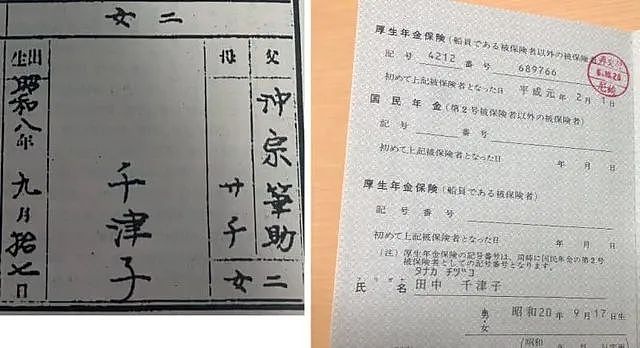 二女
父 沖宗筆助
母 サ子
二女
千津子
出生 昭和八年九月拾七日
厚生年金保険(船員である被保険者以外の被保険者)
記号 4212 番号 689766
初めて上記被保険者となった日 平成元年2月1日
再交付
国民年金(第2号被保険者以外の被保険者)
記号 番号
初めて上記被保険者となった日 年 月 日
厚生年金保険(船員である被保険者)
記号 番号
初めて上記被保険者となった日 年 月 日
(注)厚生年金保険の記号番号は、同時に国民年金の第2号
被保険者としての記号番号となります。
タナカ チヅコ
氏名 田中 千津子
男・女 昭和20年9月17日生